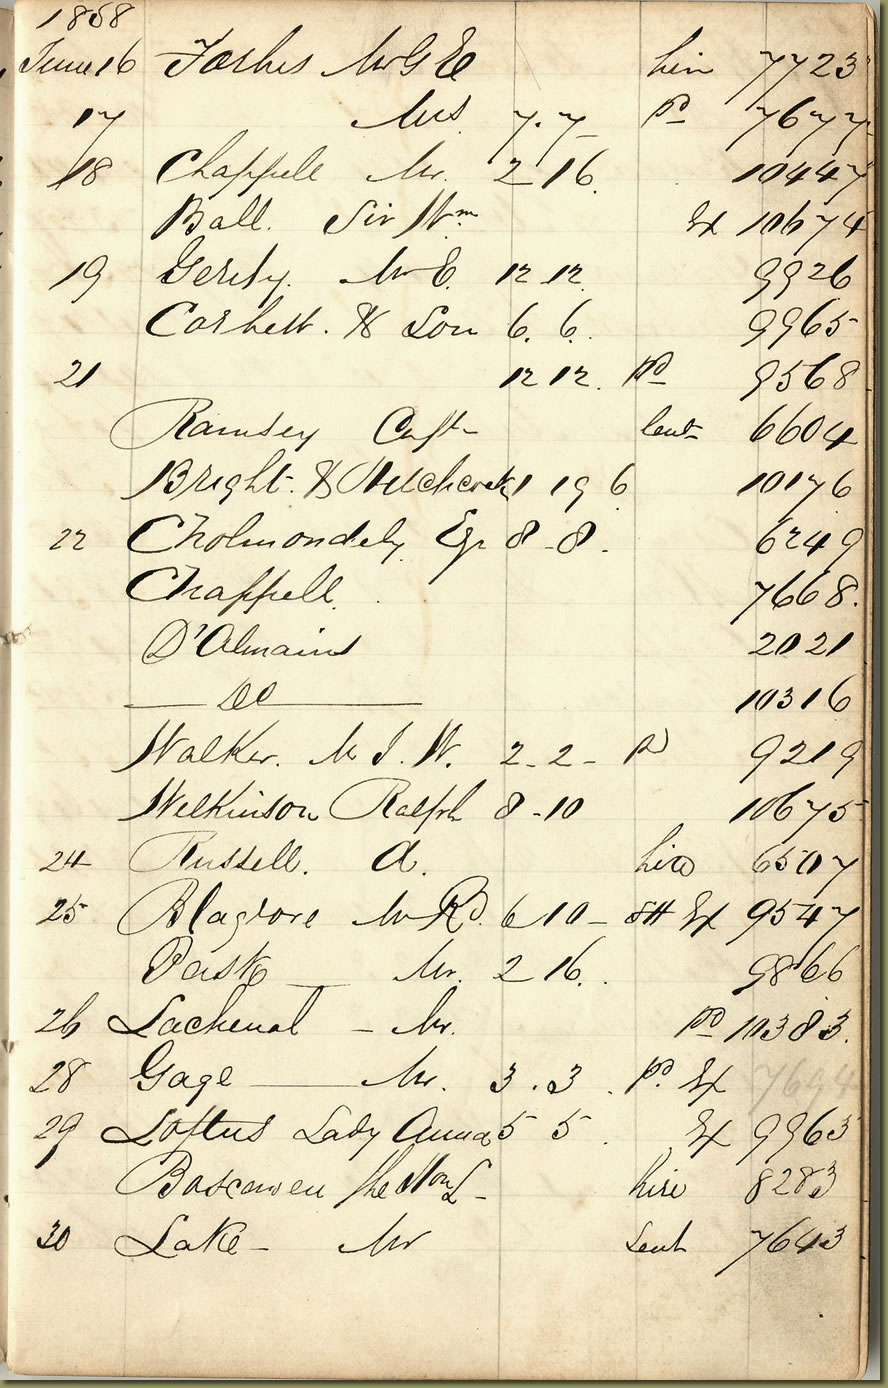 1858
June 16 Forbes Mr G E hire 7723
17 Mrs 7. 7 pd 7677
18 Chappell Mr. 2 16. 10447
Ball. Sir Wm Ex 10674
19 Gerdy. Mr E. 12 12. 9926
Corbett. & Son 6. 6. 9965
21 12 12. pd 9568
Ramsey Captn lent 6604
Bright. & Hitchcock 1 19 6 10176
22 Cholmondely Esqr 8 - 8. 6249
Chappell. 7668.
D'Almaine 2021
— Do — 10316
Walker. M J. W. 2 - 2 - pd 9219
Wilkinson Ralph 8 - 10 10675
24 Russell. A. hire 6507
25 Blagrove Mr Rd. 6 10 - SH Ex 9547
Pask — Mr. 2 16. 9866
26 Lachenal - Mr. pd 10383.
28 Gage — Mr. 3. 3. pd. Ex 7694
29 Loftus Lady Anna 5 5. Ex 9963
Boscawen the Hon L - hire 8283
30 Lake - Mr lent 7643